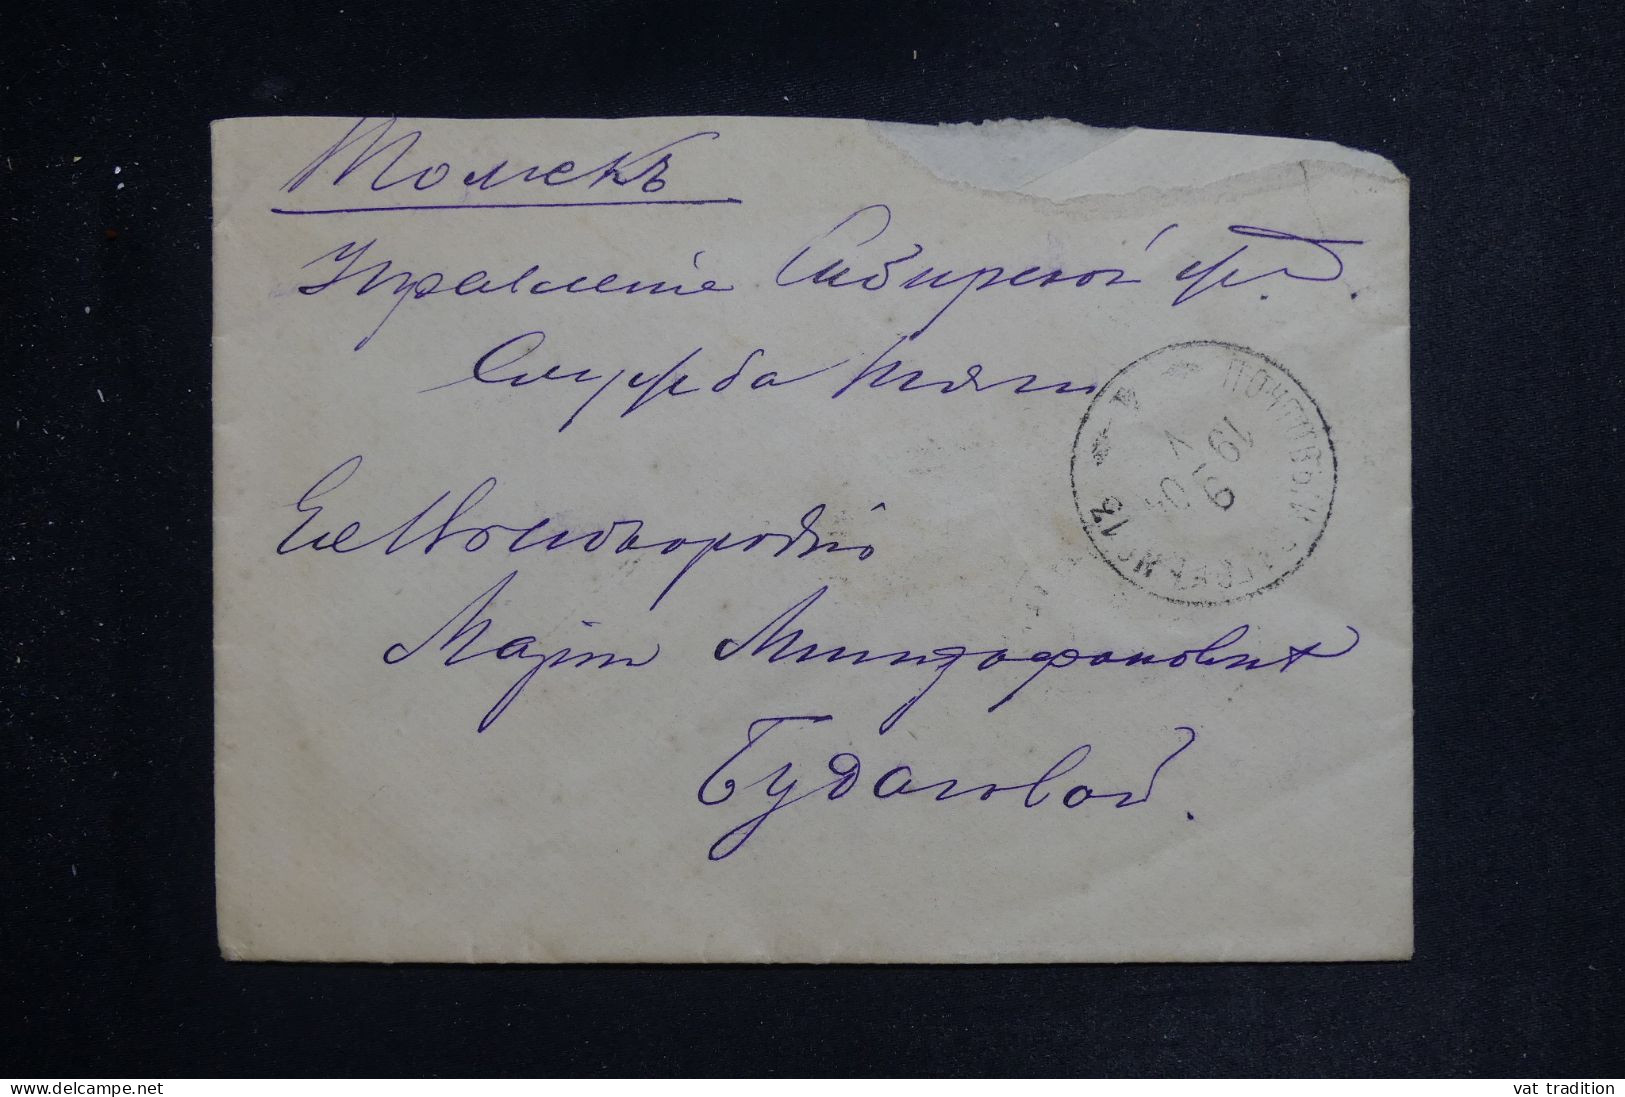 Томскъ
Управленіе Сибирской ж. д.
Служба тяги
Ея Высокородію
Маріи
Будановой.
ПОЧТОВЫЙ ВАГОНЪ № 13
19 V 04
9
delcampe.net
vat tradition